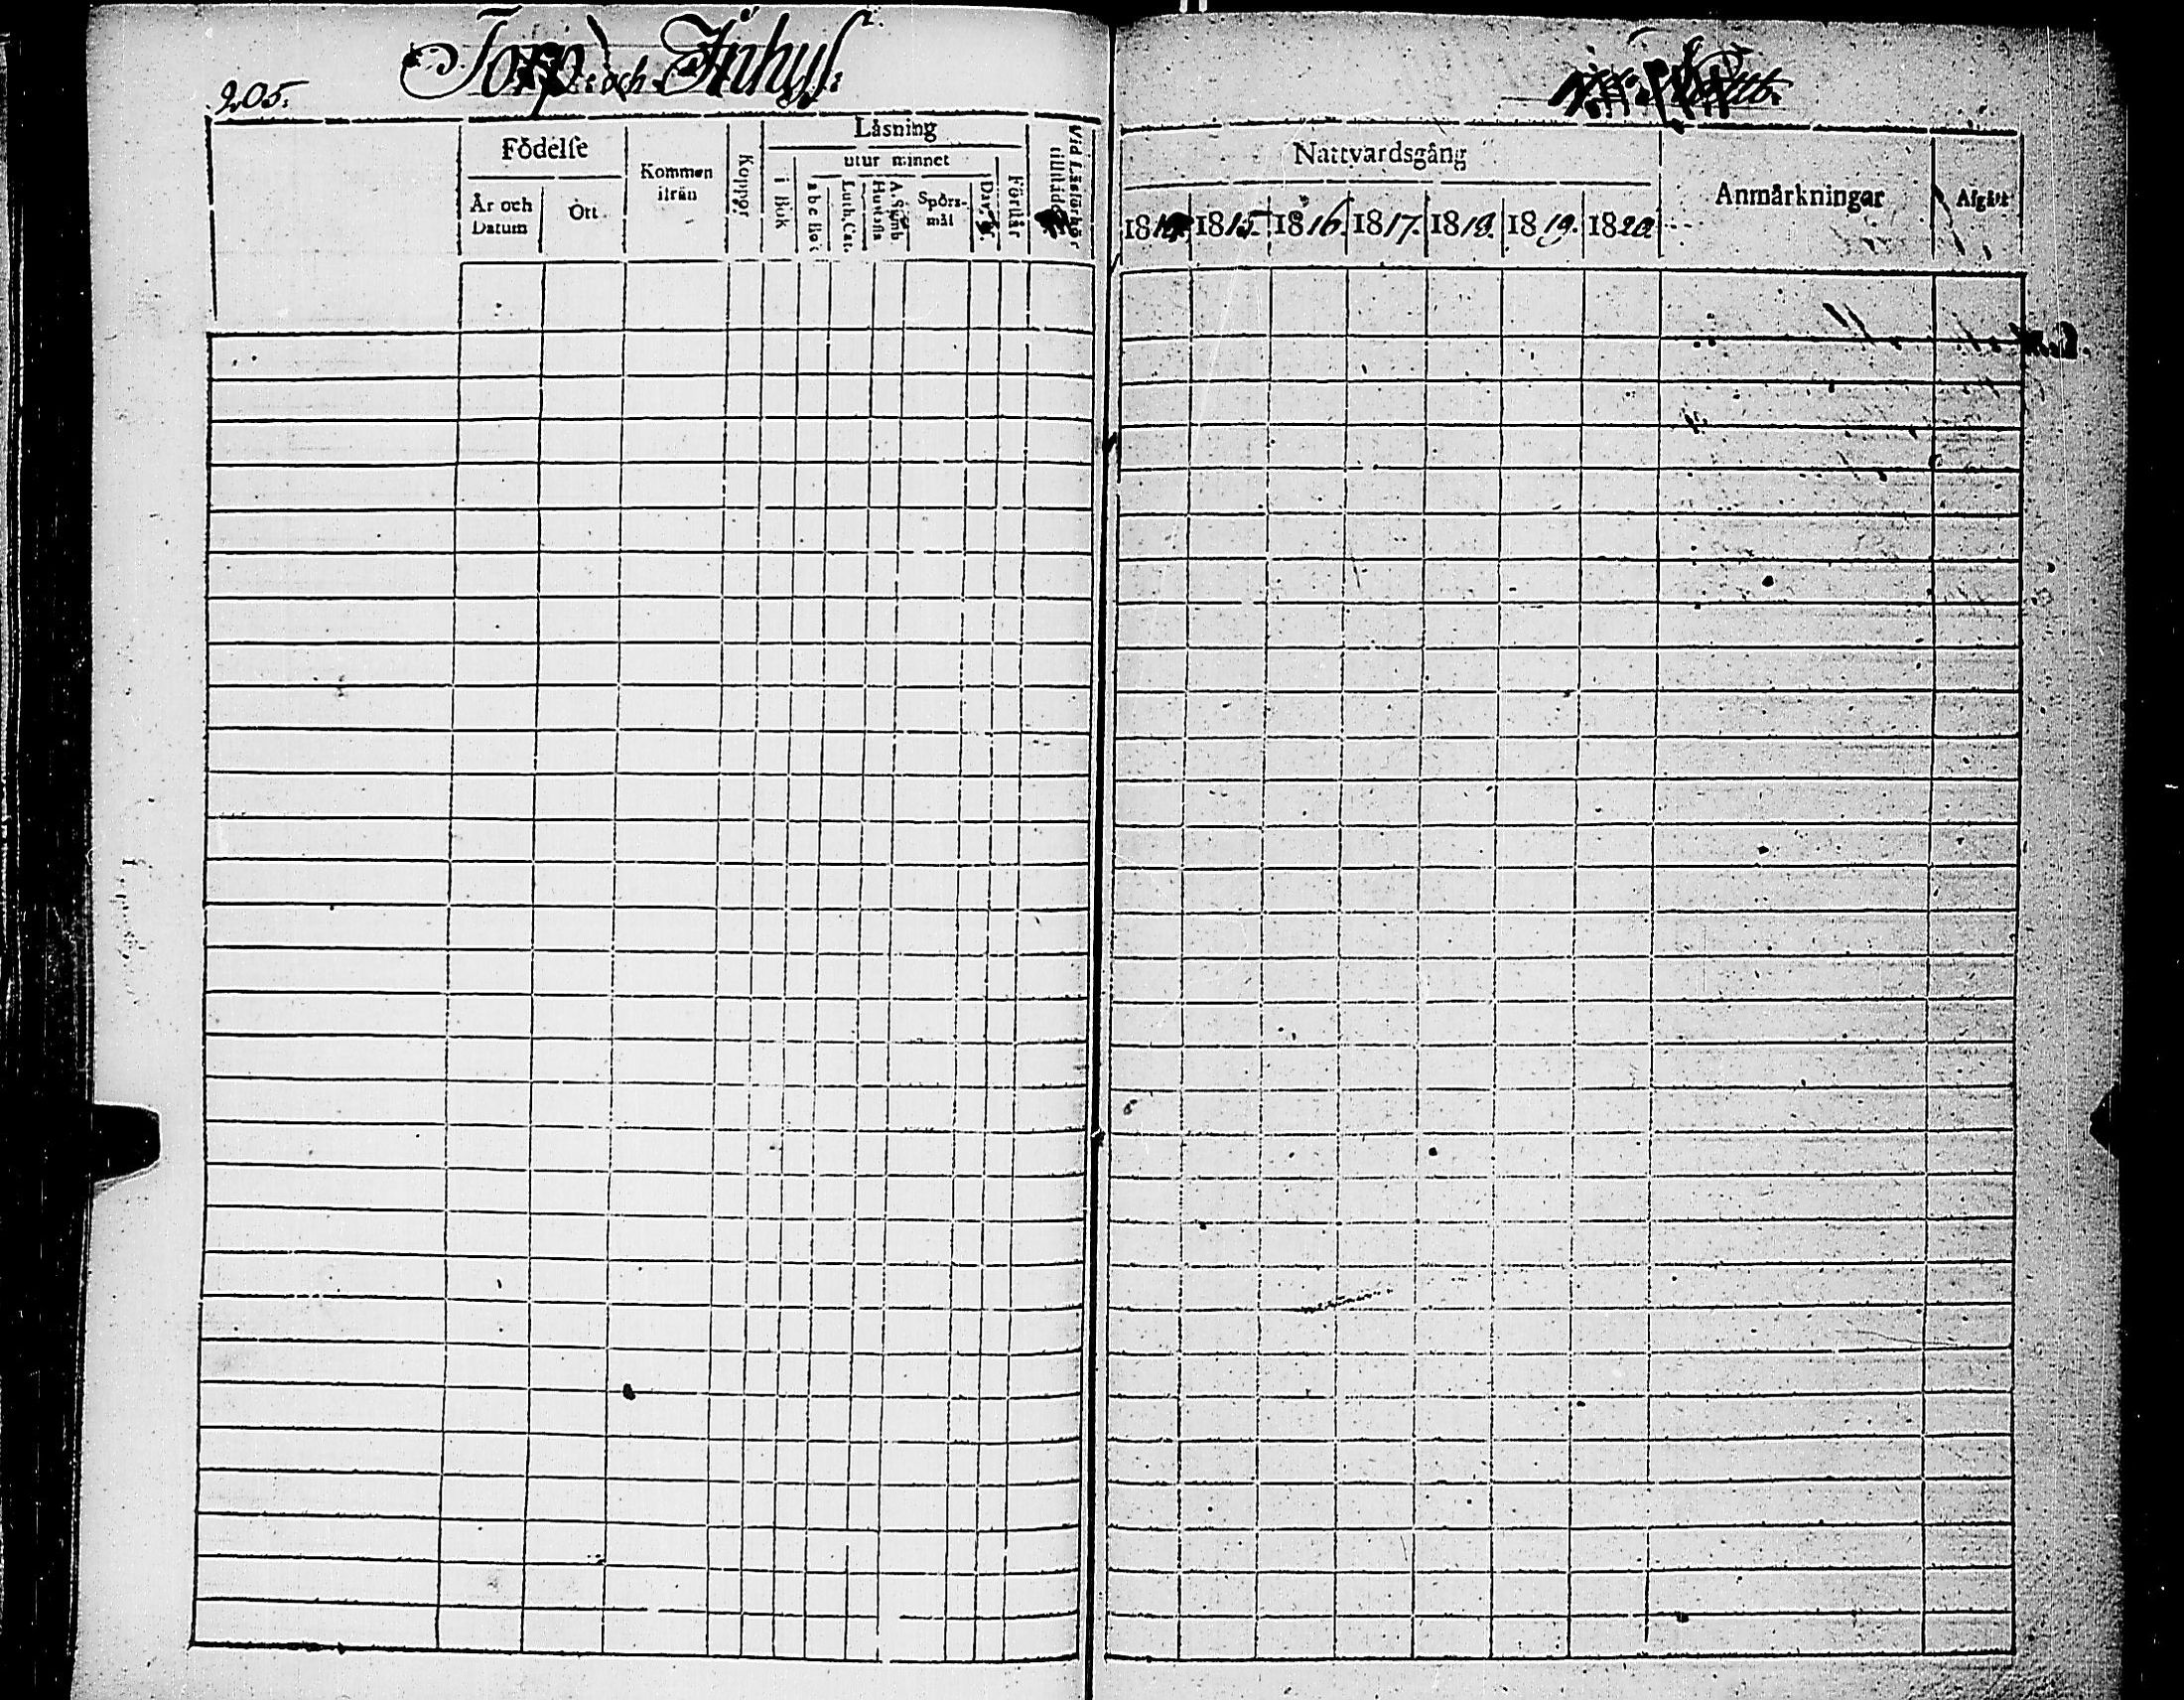 205.
Torp och Inhys.
Födelse
År och Datum
Ort
Kommen ifrån
Koppor
Läsning
i Bok
utur minnet
a b c Bok
Luth. Cat.
Hustafla
A. Symb.
Spörs-mål
Dav. 
Förstår
Vid Läsförhör tillstädes
Nattvardsgång
1814. 1815. 1816. 1817. 1818. 1819. 1820
Anmärkningar
Afgått